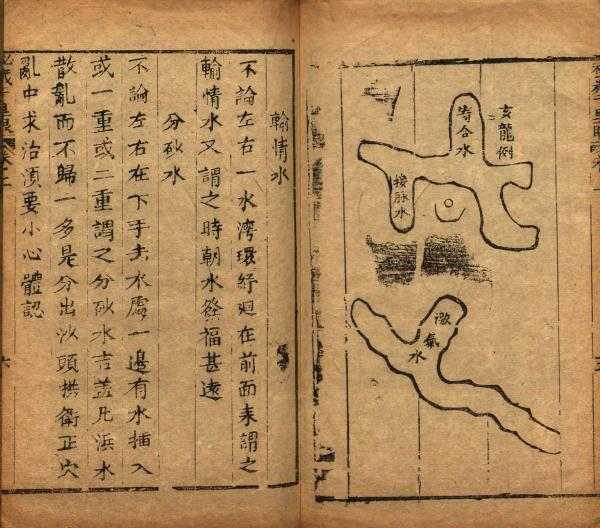 玄龍例
合水
接脉水
氣水
輸情水
不論左右一水灣環紆廻在前面来謂之
輸情水又謂之時朝水發福甚遠
分砂水
不論左右在下手去水處一邉有水插入
或一重或二重謂之分砂水吉盖凡浜水
散亂而不歸一多是分出沙頭拱衛正穴
亂中求治須要小心體認
六